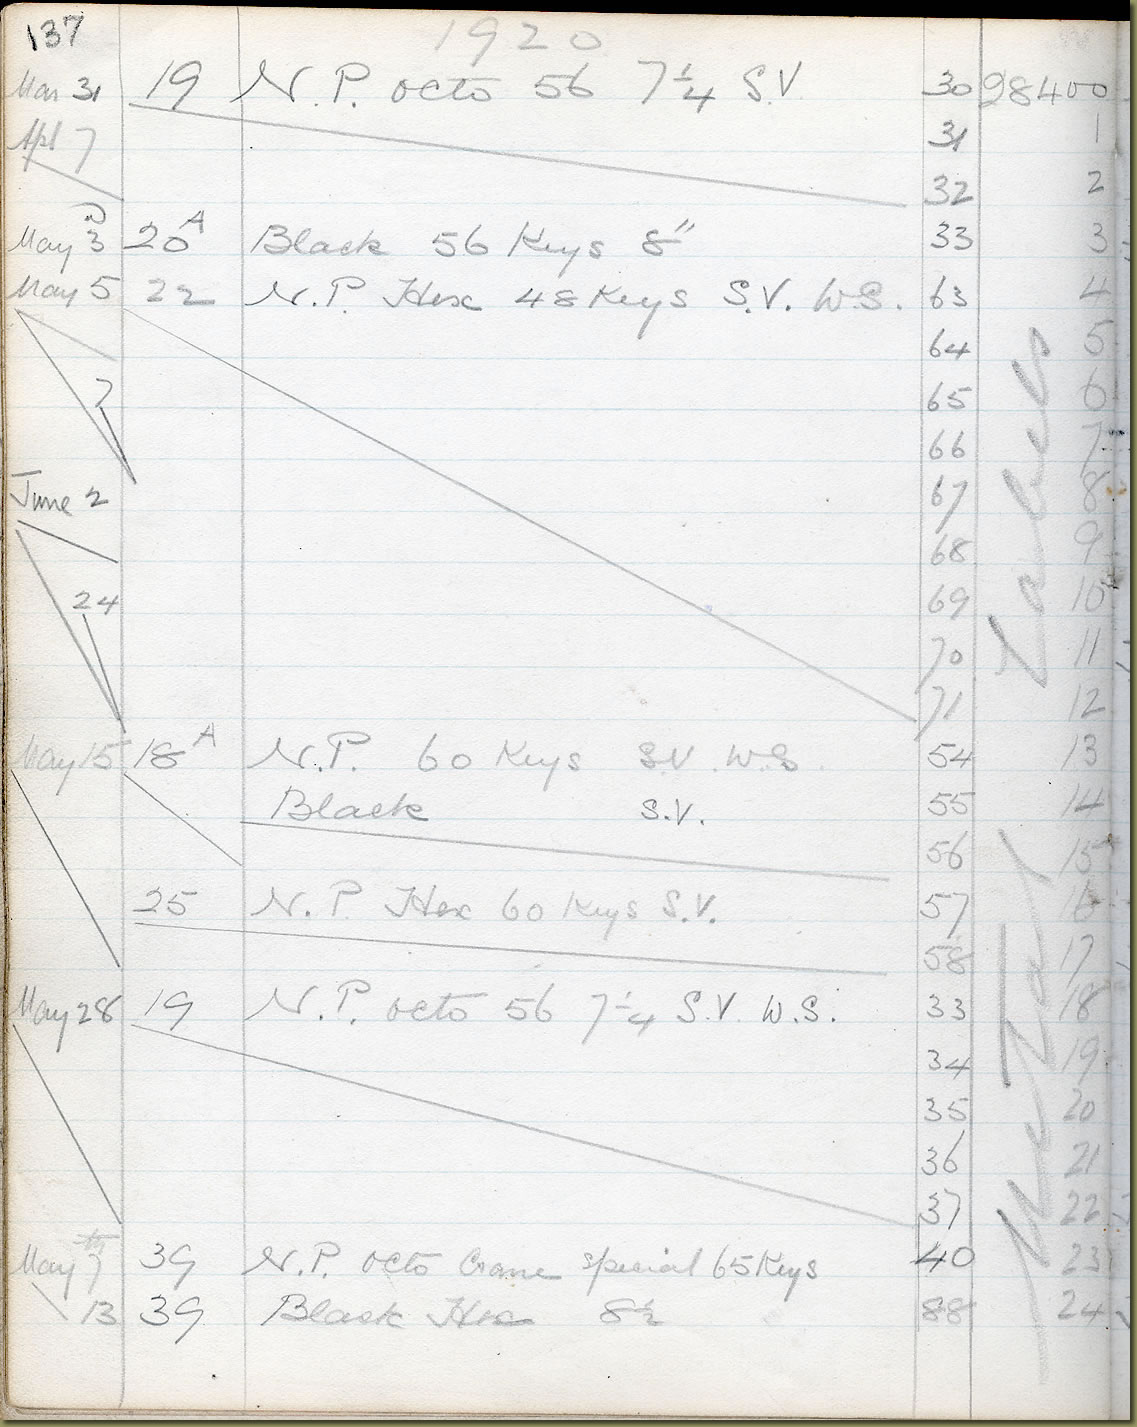 137
1920
Mar 31 19 N.P. octo 56 7 1/4 S.V 30 28400
Apl 7 31 1
32 2
May 3 20A Black 56 Keys 8" 33 3
May 5 22 N.P Hex 48 Keys S.V. W.S. 63 4
64 5
7 65 6
66 7
June 2 67 8
68 9
24 69 10
70 11
71 12
May 15 18A N.P. 60 Keys S.V. W.S. 54 13
Black S.V. 55 14
56 15
25 N.P Hex 60 Keys S.V. 57 16
58 17
May 28 19 N.P. octo 56 7 1/4 S.V. W.S. 33 18
34 19
35 20
36 21
37 22
May 7th 39 N.P. octo Crane special 65 Keys 40 23
13 39 Black Hex 8 1/2 88 24
Labels